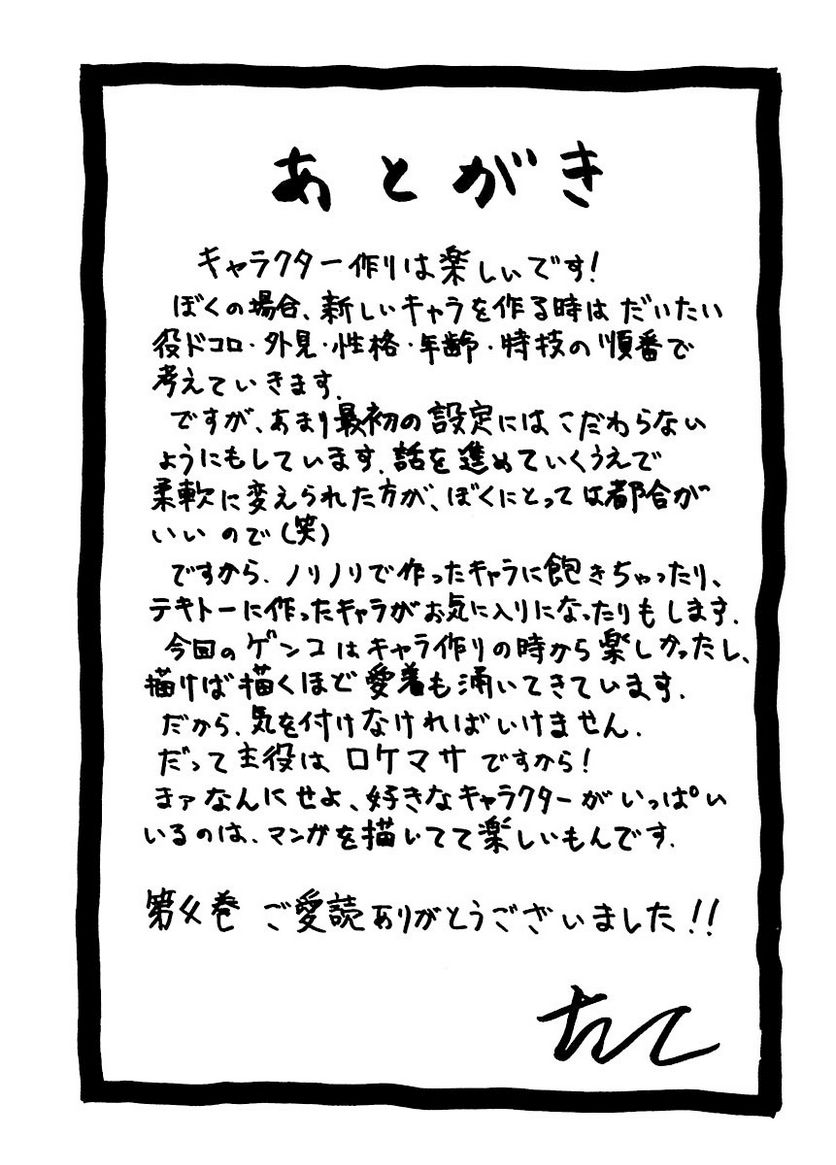 あとがき
キャラクター作りは楽しいです!
ぼくの場合、新しいキャラを作る時は だいたい
役ドコロ・外見・性格・年齢・特技の順番で
考えていきます.
ですが、あまり最初の設定にはこだわらない
ようにもしています.話を進めていくうえで
柔軟に変えられた方が、ぼくにとっては都合が
いいので(笑)
ですから、ノリノリで作ったキャラに飽きちゃったり、
テキトーに作ったキャラがお気に入りになったりもします.
今回のゲンコはキャラ作りの時から楽しかったし、
描けば描くほど愛着も涌いてきています.
だから、気を付けなければいけません.
だって主役は ロケマサ ですから!
まァなんにせよ、好きなキャラクターがいっぱい
いるのは、マンガを描いてて楽しいもんです.
第4巻 ご愛読ありがとうございました!!